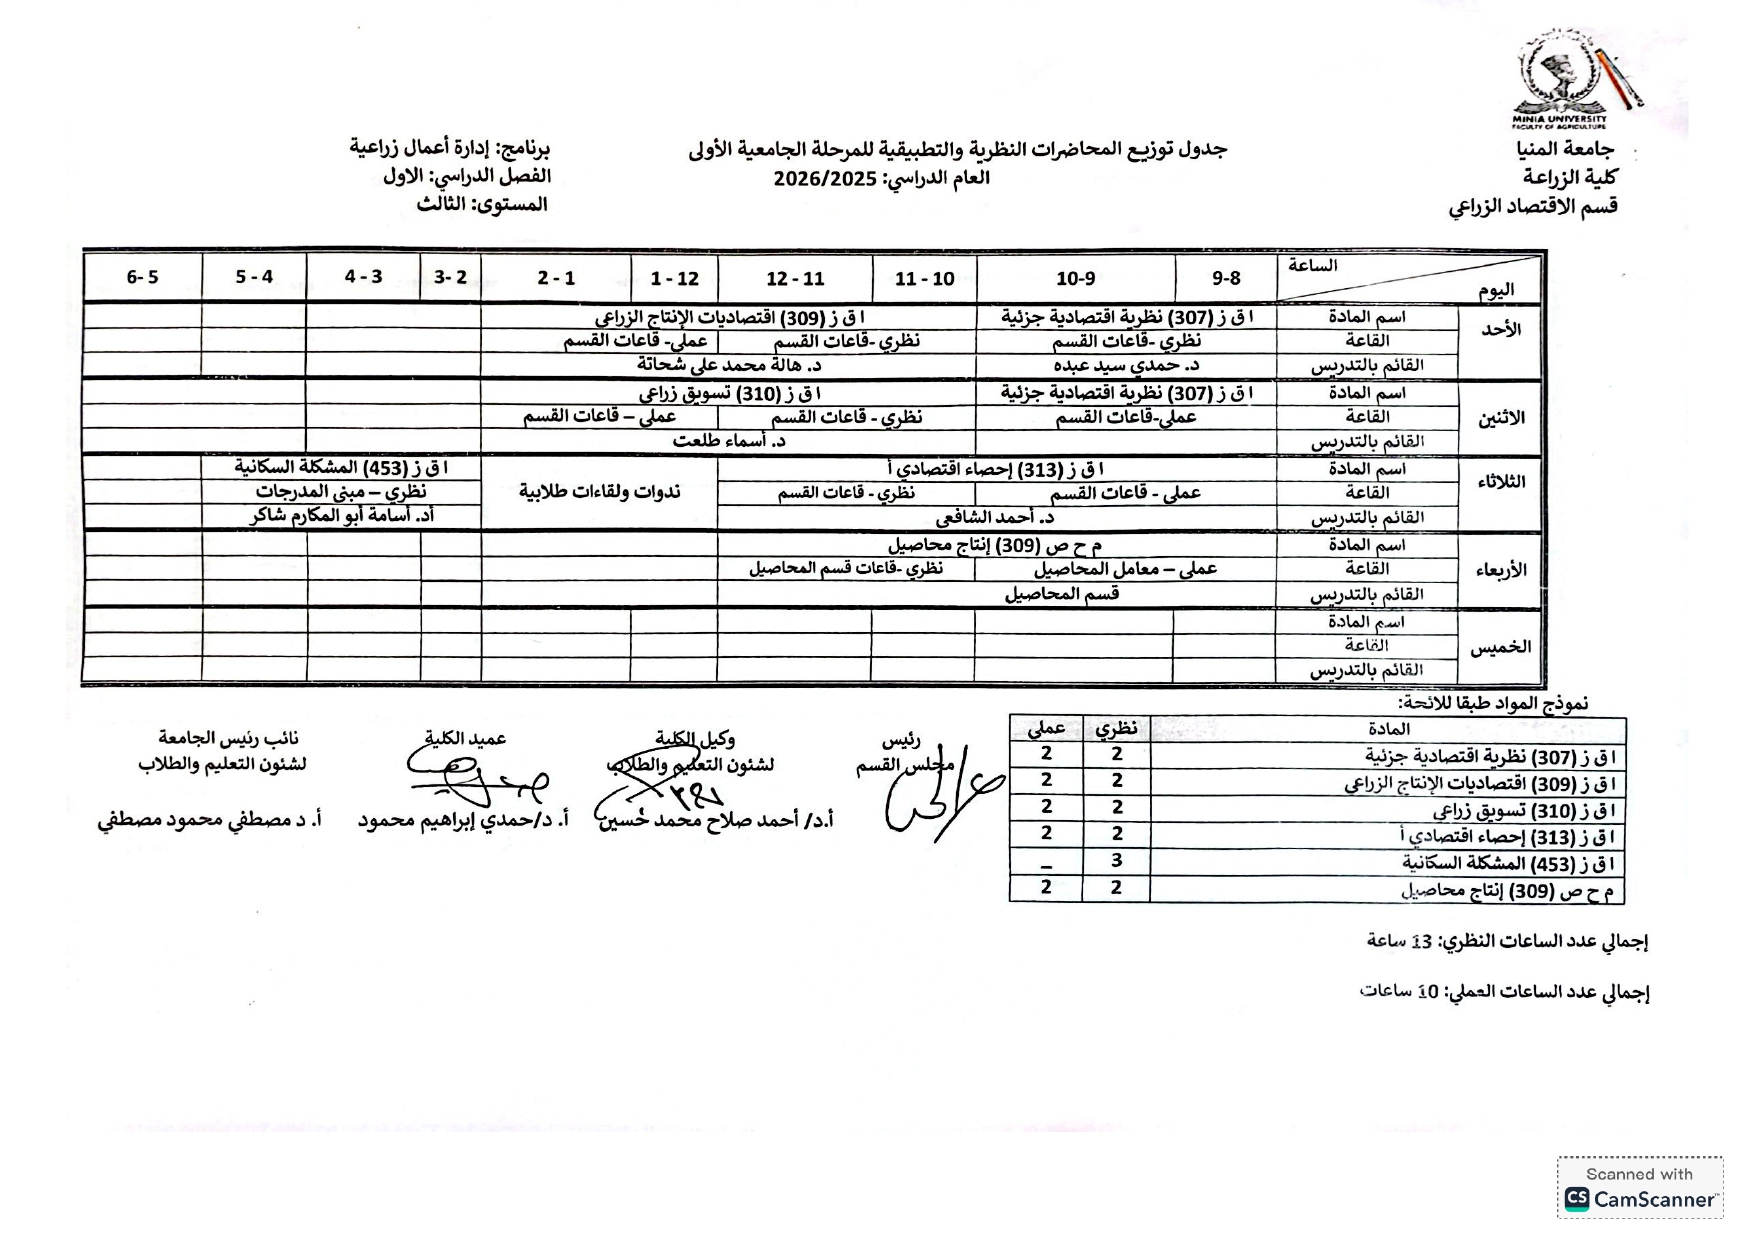 MINIA UNIVERSITY
FACULTY OF AGRICULTURE
جامعة المنيا
كلية الزراعة
قسم الاقتصاد الزراعي
جدول توزيع المحاضرات النظرية والتطبيقية للمرحلة الجامعية الأولى
العام الدراسي: 2026/2025
برنامج: إدارة أعمال زراعية
الفصل الدراسي: الاول
المستوى: الثالث
الساعة
اليوم
9-8 10-9 11 - 10 12 - 11 1 - 12 2 - 1 3- 2 4 - 3 5 - 4 6- 5
الأحد
اسم المادة ا ق ز (307) نظرية اقتصادية جزئية ا ق ز (309) اقتصاديات الإنتاج الزراعي
القاعة نظري -قاعات القسم نظري -قاعات القسم عملي- قاعات القسم
القائم بالتدريس د. حمدي سيد عبده د. هالة محمد علي شحاتة
الاثنين
اسم المادة ا ق ز (307) نظرية اقتصادية جزئية ا ق ز (310) تسويق زراعي
القاعة عملي-قاعات القسم نظري - قاعات القسم عملي – قاعات القسم
القائم بالتدريس د. أسماء طلعت
الثلاثاء
اسم المادة ا ق ز (313) إحصاء اقتصادي أ ا ق ز (453) المشكلة السكانية
القاعة عملي - قاعات القسم نظري - قاعات القسم ندوات ولقاءات طلابية نظري – مبنى المدرجات
القائم بالتدريس د. أحمد الشافعي أد. أسامة أبو المكارم شاكر
الأربعاء
اسم المادة م ح ص (309) إنتاج محاصيل
القاعة عملي – معامل المحاصيل نظري -قاعات قسم المحاصيل
القائم بالتدريس قسم المحاصيل
الخميس
اسم المادة
القاعة
القائم بالتدريس
نموذج المواد طبقا للائحة:
المادة نظري عملي
ا ق ز (307) نظرية اقتصادية جزئية 2 2
ا ق ز (309) اقتصاديات الإنتاج الزراعي 2 2
ا ق ز (310) تسويق زراعي 2 2
ا ق ز (313) إحصاء اقتصادي أ 2 2
ا ق ز (453) المشكلة السكانية 3 _
م ح ص (309) إنتاج محاصيل 2 2
رئيس
مجلس القسم
وكيل الكلية
لشئون التعليم والطلاب
أ.د/ أحمد صلاح محمد حسين
عميد الكلية
أ. د/حمدي إبراهيم محمود
نائب رئيس الجامعة
لشئون التعليم والطلاب
أ. د مصطفي محمود مصطفي
إجمالي عدد الساعات النظري: 13 ساعة
إجمالي عدد الساعات العملي: 10 ساعات
Scanned with
CS CamScanner